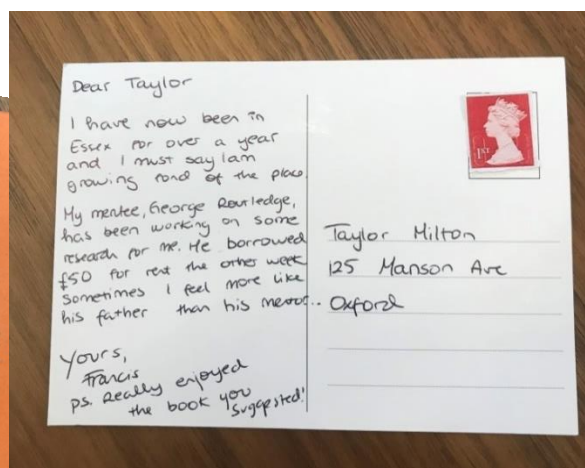 Dear Taylor
I have now been in
Essex for over a year
and I must say I am
growing fond of the place.
My mentee, George Routledge,
has been working on some
research for me. He borrowed
£50 for rent the other week
sometimes I feel more like
his father than his mentor...
Yours,
Francis
PS. Really enjoyed
the book you
suggested!
1st
Taylor Milton
125 Manson Ave
Oxford